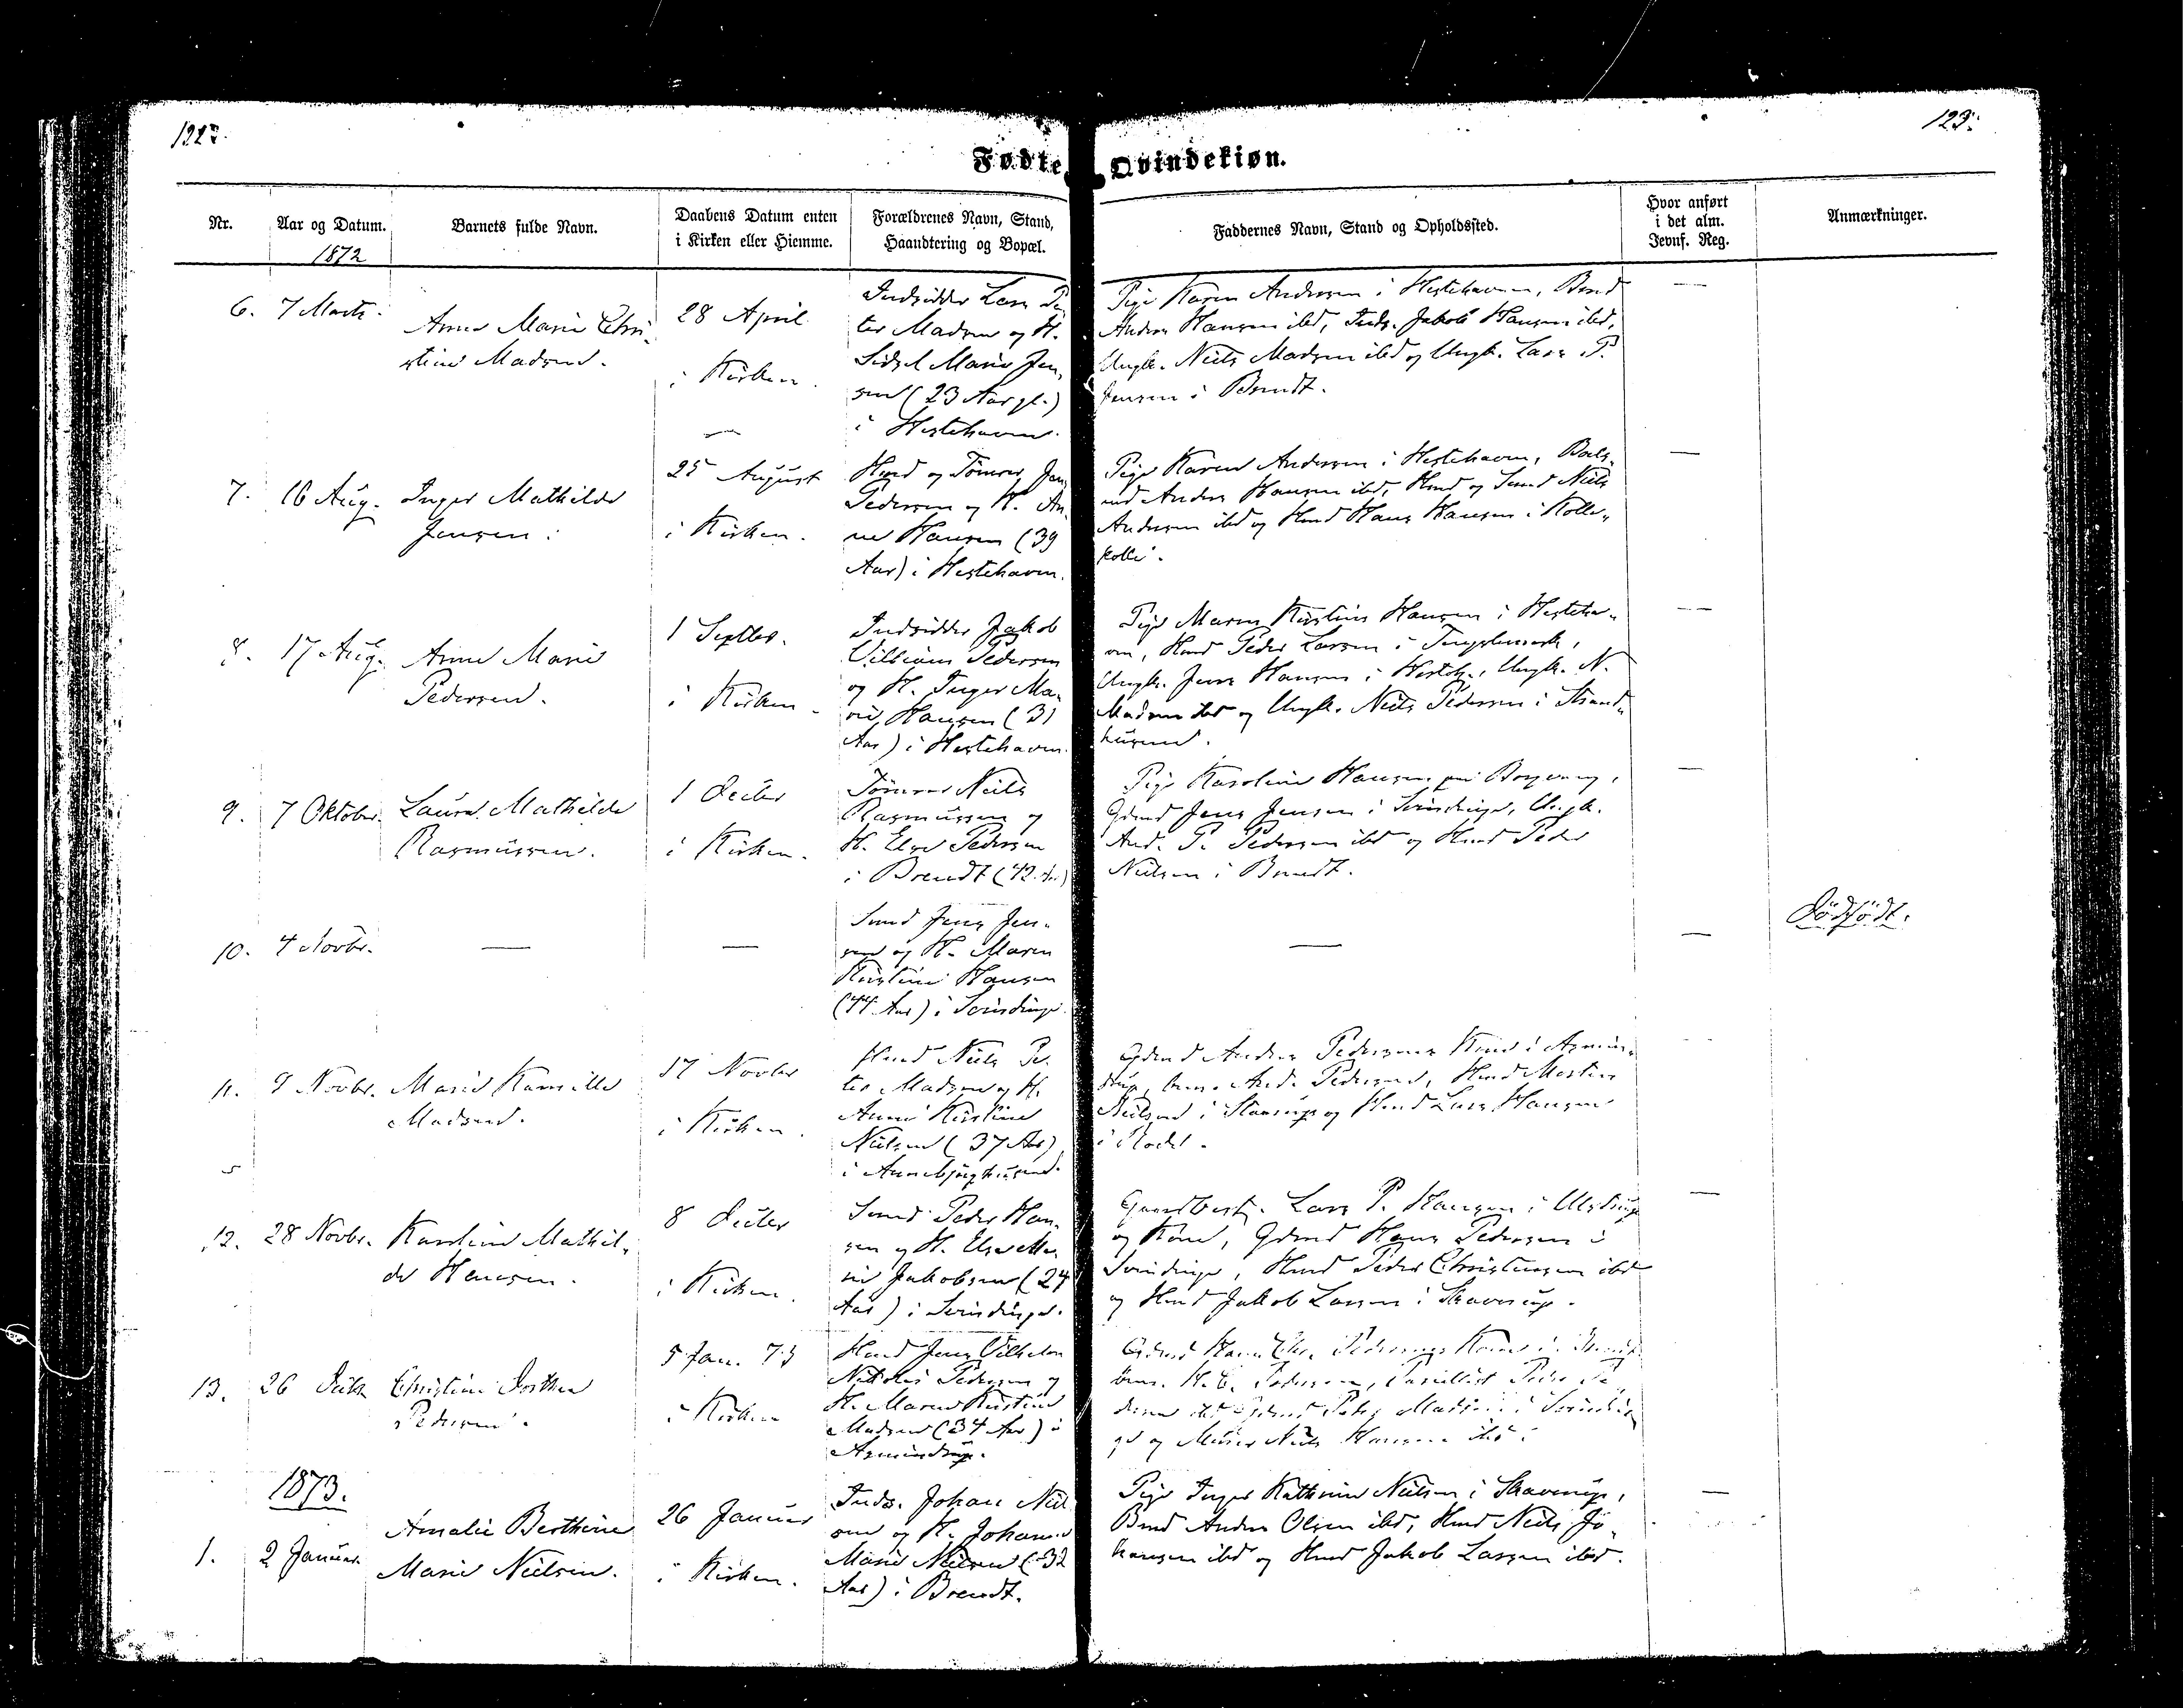 122.
123.
Fødte Qvindekiøn.
Nr.
Aar og Datum.
1872
Barnets fulde Navn.
Daabens Datum enten
i Kirken eller Hiemme.
Forældrenes Navn, Stand,
Haandtering og Bopæl.
Faddernes Navn, Stand og Opholdssted.
Hvor anført
i det alm.
Jevnf. Reg.
Anmærkninger.
6.
7 Marts.
Anne Marie Chri-
stine Madsen.
28 April
i Kirken.
Indsidder Lars Pe-
ter Madsen og H.
Sidsel Marie Jen-
sen (23 Aar gl.)
i Hestehaven.
Pige Karen Andersen i Hestehaven, Bmd
Anders Hansen ibd, Inds. Jakob Hansen ibd,
Ungk. Niels Madsen ibd og Ungk. Lars P.
Jensen i Brendt.
—
7.
16 Aug.
Inger Mathilde
Jensen.
25 August
i Kirken.
Hmd og Tømrer Jens
Pedersen og H. An-
ne Hansen (39
Aar) i Hestehaven.
Pige Karen Andersen i Hestehaven, Bols-
md Anders Hansen ibd, Hmd og Smed Niels
Andersen ibd og Hmd Hans Hansen i Kolle-
kolle.
—
8.
17 Aug.
Anne Marie
Pedersen.
1 Septbr.
i Kirken.
Indsidder Jakob
Villiam Pedersen
og H. Inger Ma-
rie Hansen (31
Aar) i Hestehaven.
Pige Maren Kirstine Hansen i Hesteha-
ven, Hmd Peder Larsen i
Ungk. Jens Hansen i Ungk. N.
Madsen ibd og Ungk. Niels Pedersen i Strand-
husene.
—
9.
7 Oktober.
Laura Mathilde
Rasmussen.
1 Decbr
i Kirken.
Tømrer Niels
Rasmussen og
H. Else Pedersen
i Brendt (42 Aar)
Pige Karoline Hansen
Gdmd Jens Jensen i Svindinge, Ungk.
And. P. Pedersen ibd og Hmd Peder
Nielsen i Brendt.
—
10.
4 Novbr.
—
—
Smed Jens Jen-
sen og H. Maren
Kirstine Hansen
(44 Aar) i Svindinge.
—
—
Dødfødt.
11.
9 Novbr.
Marie Kamilla
Madsen.
17 Novbr
i Kirken.
Hmd Niels Pe-
ter Madsen og H.
Anne Kirstine
Nielsen (37 Aar)
i
Gdmd Anders Pedersens Kone i
And. Pedersen, Hmd Morten
Nielsen i og Hmd Lars Hansen
i
12.
28 Novbr.
Karoline Mathil-
de Hansen.
8 Decbr
i Kirken.
Smed Peder Han-
sen og H. Else Ma-
rie Jakobsen (24
Aar) i Svindinge.
Gaardbest. Lars P. Hansen i
og Kone, Gdmd Hans Pedersen i
Svindinge, Hmd Peder Christensen ibd
og Hmd Jakob Larsen i Skaverup.
—
13.
26 Decbr
Christine Dorthea
Pedersen.
5 Jan. 73
i Kirken
Hmd Jens Vilhelm
Pedersen og
H. Maren Kirstine
Madsen (34 Aar) i
Gdmd Hans Chr. Pedersens Kone i
Pedersen, Peder Pe-
dersen ibd, Gdmd Madsen i Svindin-
ge og Murer Niels Hansen ibd.
1873.
1.
2 Januar.
Amalie Berthine
Marie Nielsen.
26 Januar
i Kirken.
Inds. Johan Niel-
sen og H. Johanne
Marie Nielsen (32
Aar) i Brendt.
Pige Inger Kathrine Nielsen i Skaverup,
Bmd Anders Olsen ibd, Hmd Niels Jo-
hansen ibd og Hmd Jakob Larsen ibd.
—